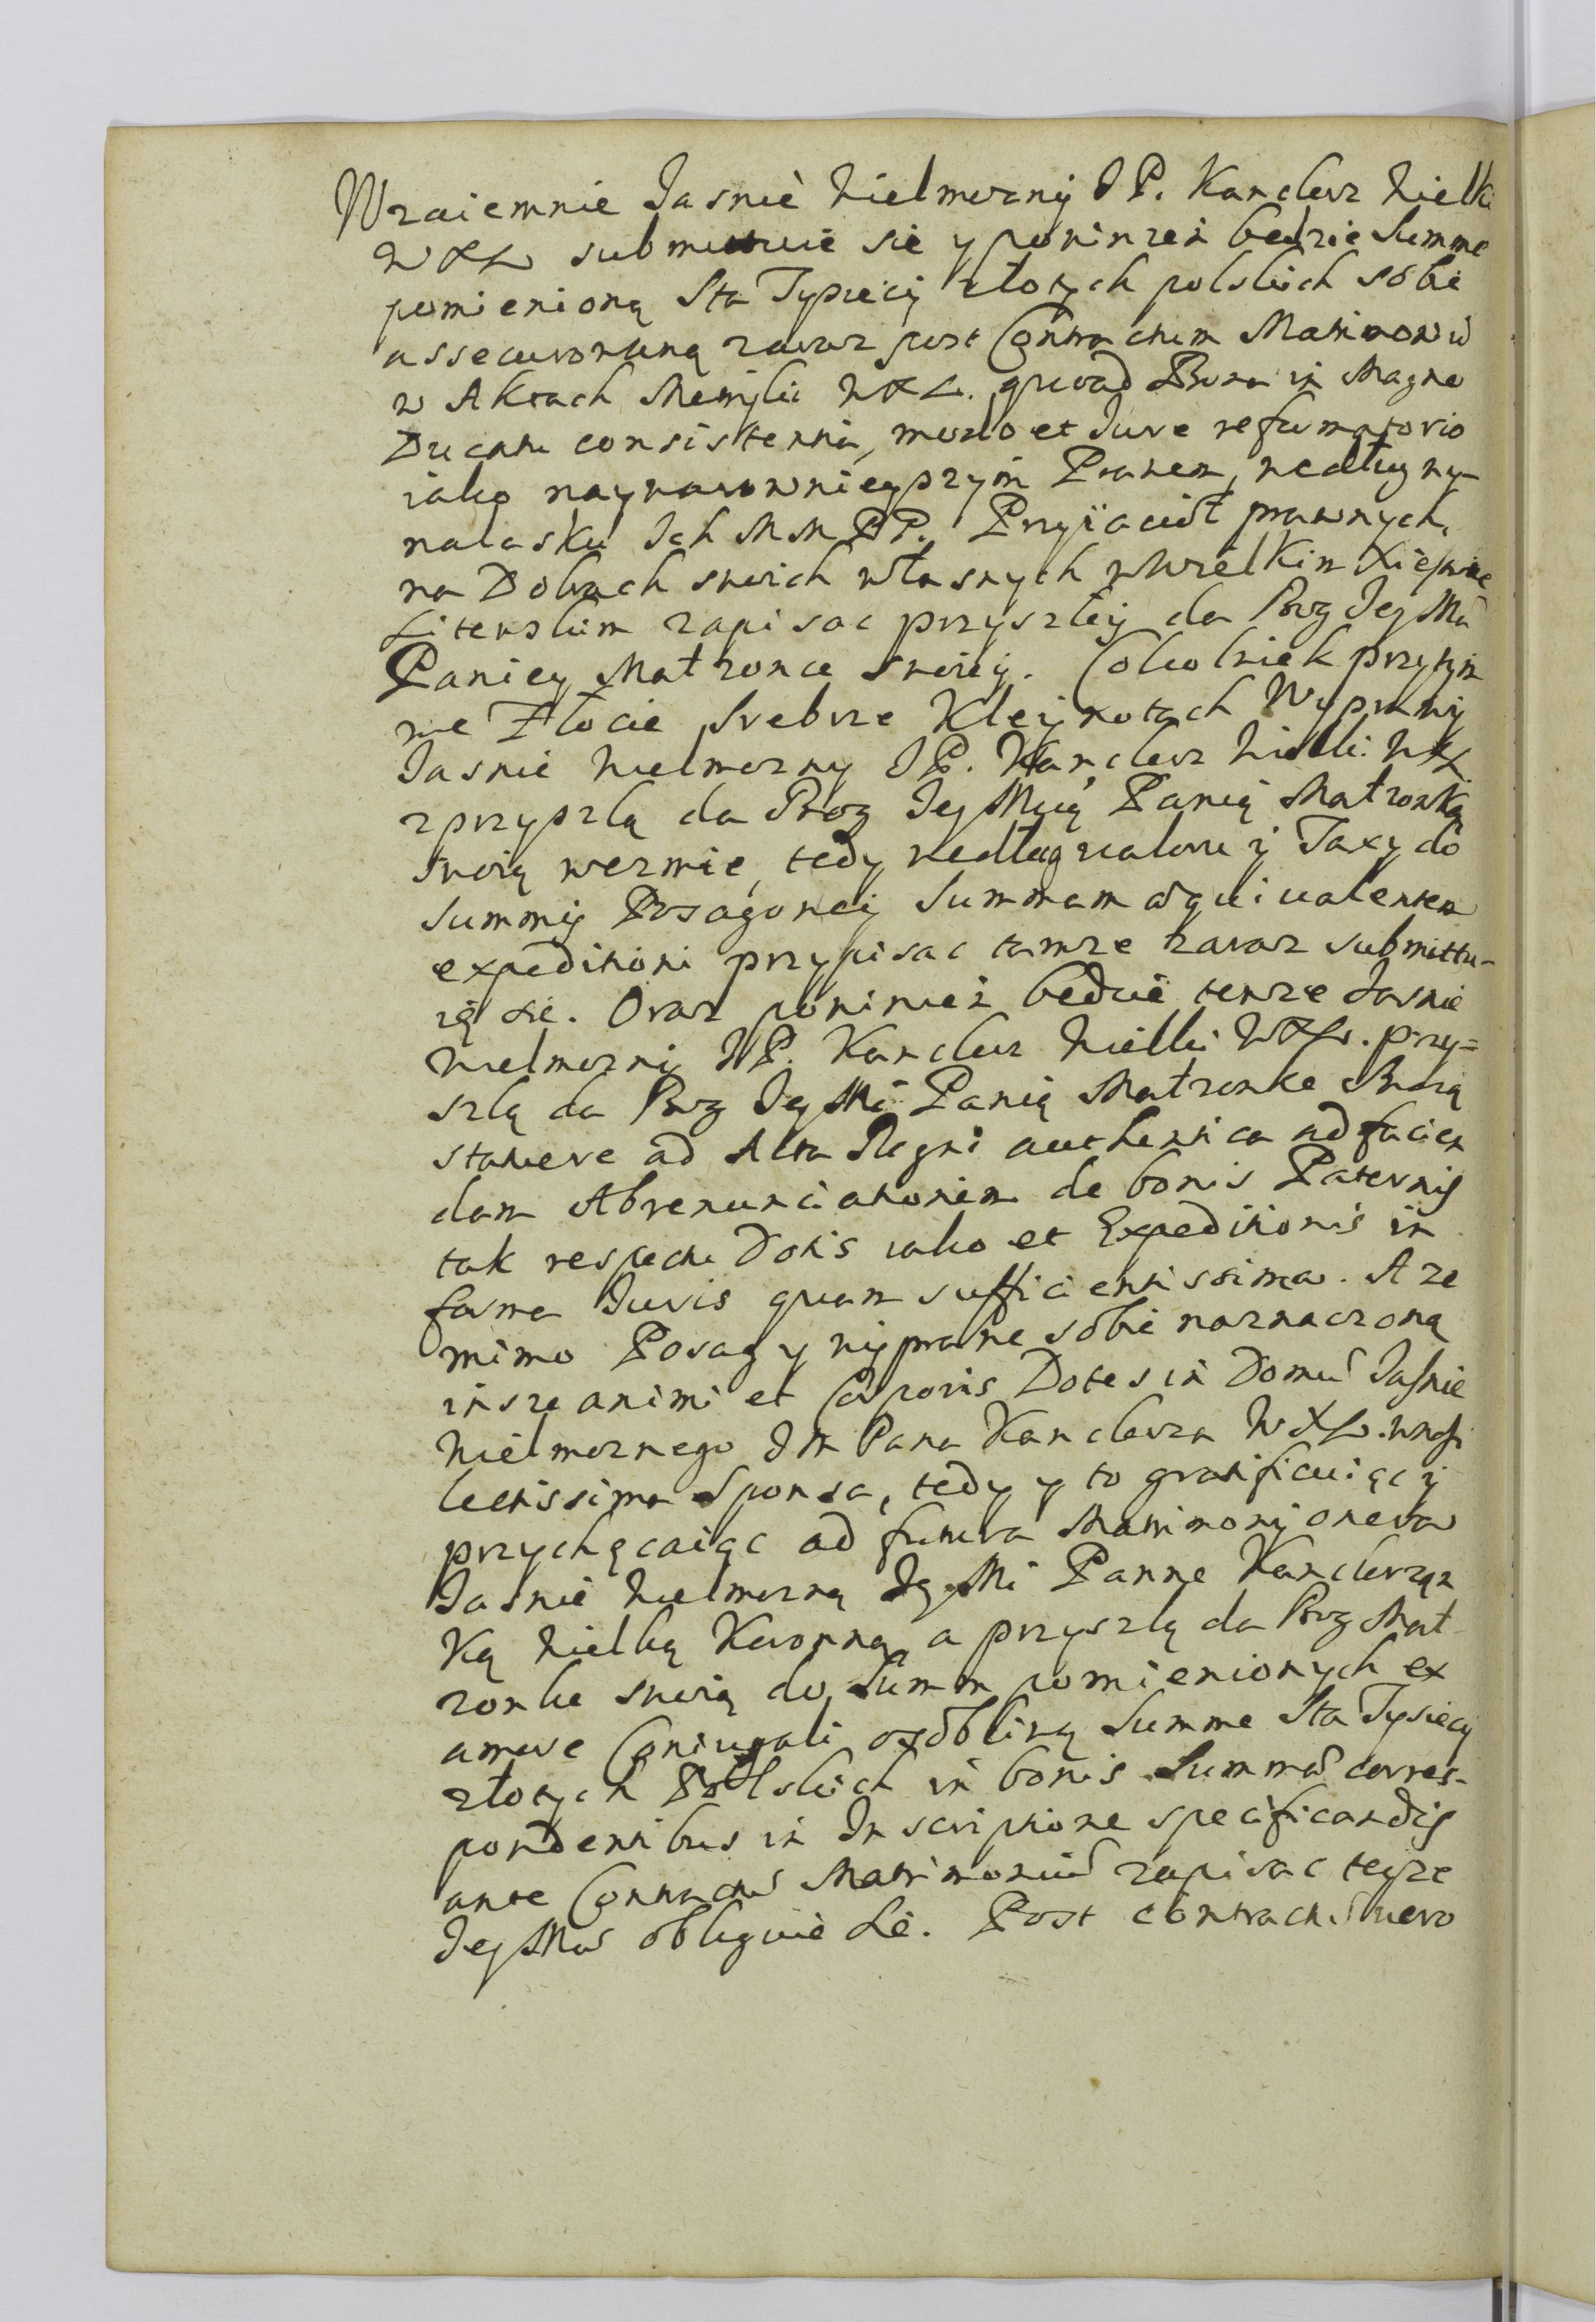 Wzaiemnie Jasnie Wielmozny J P. Kanclerz Wielki
W X L submittuie się y powinien będzie Summę
pomienioną Sta Tysięcy złotych polskich sobie
assecurowaną zaraz post Contractum Matrimonij
w Aktach Metryki W X L. quoad Bona in Magno
Ducatu consistentia, modo et Jure reformatorio
iako naywarownieyszym Prawem, według wy-
nalasku Ich M M P P. Przyiaciół prawnych,
na Dobrach swoich własnych w Wielkim Xięstwie
Litewskim zapisac przyszłey da Bog Jey Mci
Paniey Małzonce swoiey. Cokolwiek przytym
we Złocie, Srebrze Kleynotach Wyprawy
Jasnie Wielmozny J P. Kanclerz Wielki W X L
z przyszłą da Bog Jey Mcią Panią Małzonką
swoią wezmie, tedy według waloru y Taxy do
Summy Posagowey Summam æquivalentem
expeditioni przypisac tamze zaraz submittu-
ię się. Oraz powinien będzie tenze Jasnie
Wielmozny J P. Kanclerz Wielki W X L. przy=
szłą da Bog Jey Mć Panią Małzonkę Swoią
stawere ad Acta Regni authentica ad facien
dam Abrenunciationem de bonis Paternis
tak respectu Dotis iako et Expeditionis in
forma Juris quam sufficientissima. A ze
mimo Posag y wyprawę sobie naznaczoną
insze animi et Corporis Dotes in Domum Jasnie
Wielmoznego J M Pana Kanclerza W X L. wnosi
lectissima Sponsa, tedy y to gratificuiąc y
przychęcaiąc ad futura Matrimonij onera
Jasnie Wielmozną Jey Mć Pannę Kanclerzan
kę Wielką Koronną a przyszłą da Bog Mał-
zonkę swoią do Summ pomienionych ex
amore Coniugali osobliwą Summę Sta Tysięcy
złotych Polskich in bonis Summæ corres-
pondentibus in Inscriptione specificandis
ante Contractum Matrimonium zapisac teyze
Jey Mci obliguie się. Post contractum vero